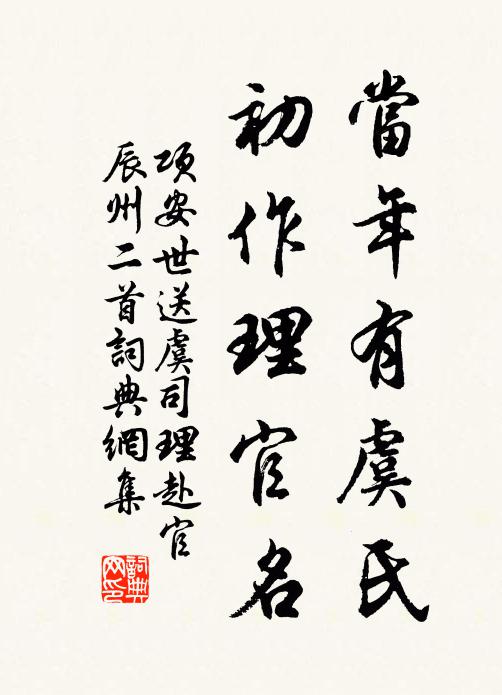 當年有虞氏
初作理官名
項安世送虞司理赴官
辰州二首詞典網集
詞典网印